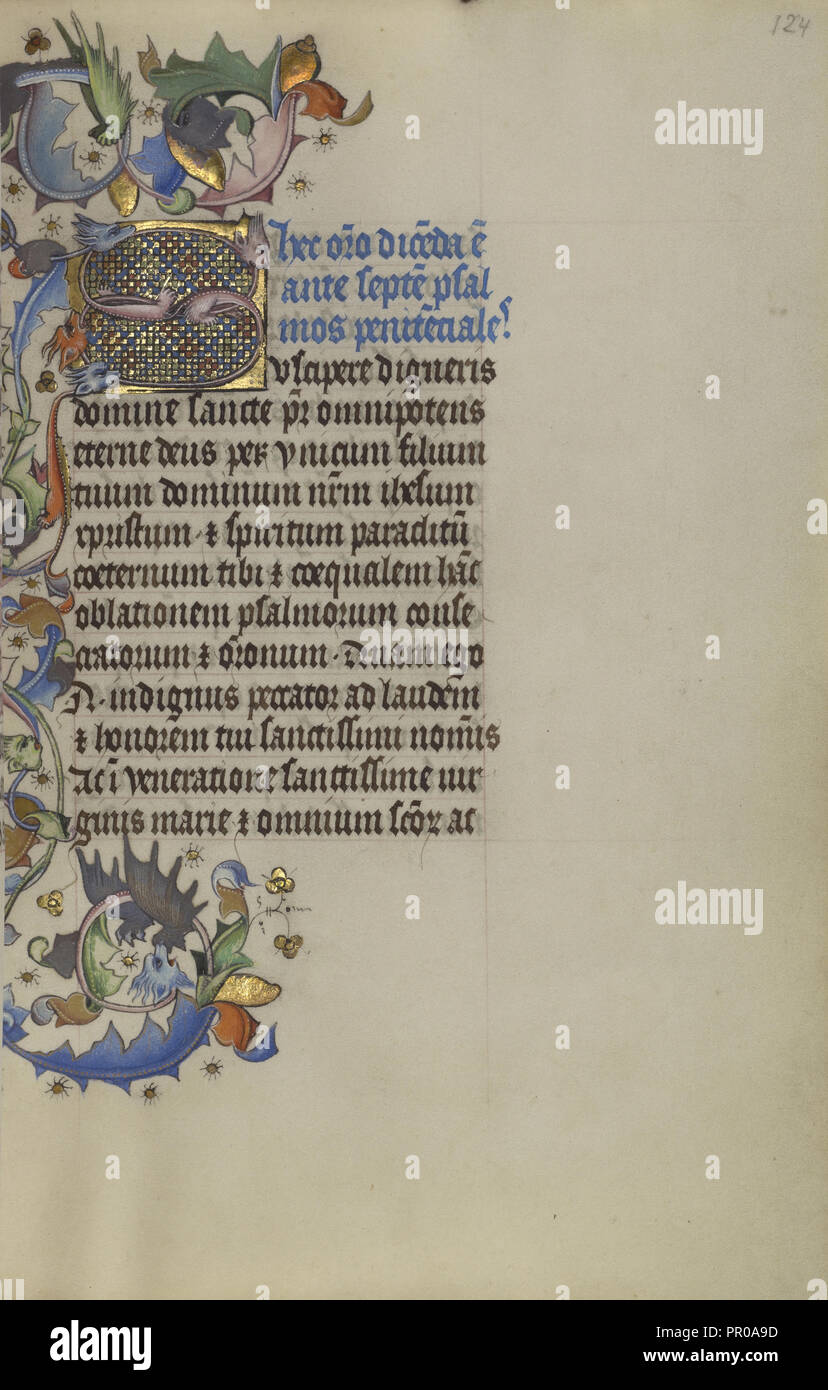 124
hec or̄o dicēda ē
ante septē psal
mos penitēciales
Suscipere digneris
domine sancte pr̄ omnipotens
eterne deus per vnicum filium
tuum dominum nr̄m ihesum
xpristum ⁊ spiritum paraclitū
coeternum tibi ⁊ coequalem hāc
oblationem psalmorum conse
cratorum ⁊ or̄onum
N. indignus peccator ad laudem
⁊ honorem tui sanctissimi nom̄is
Ac ī veneratione sanctissime uir
ginis marie ⁊ omnium sc̄oꝝ ac
a alamy
alamy
Image ID: PR0A9D
www.alamy.com